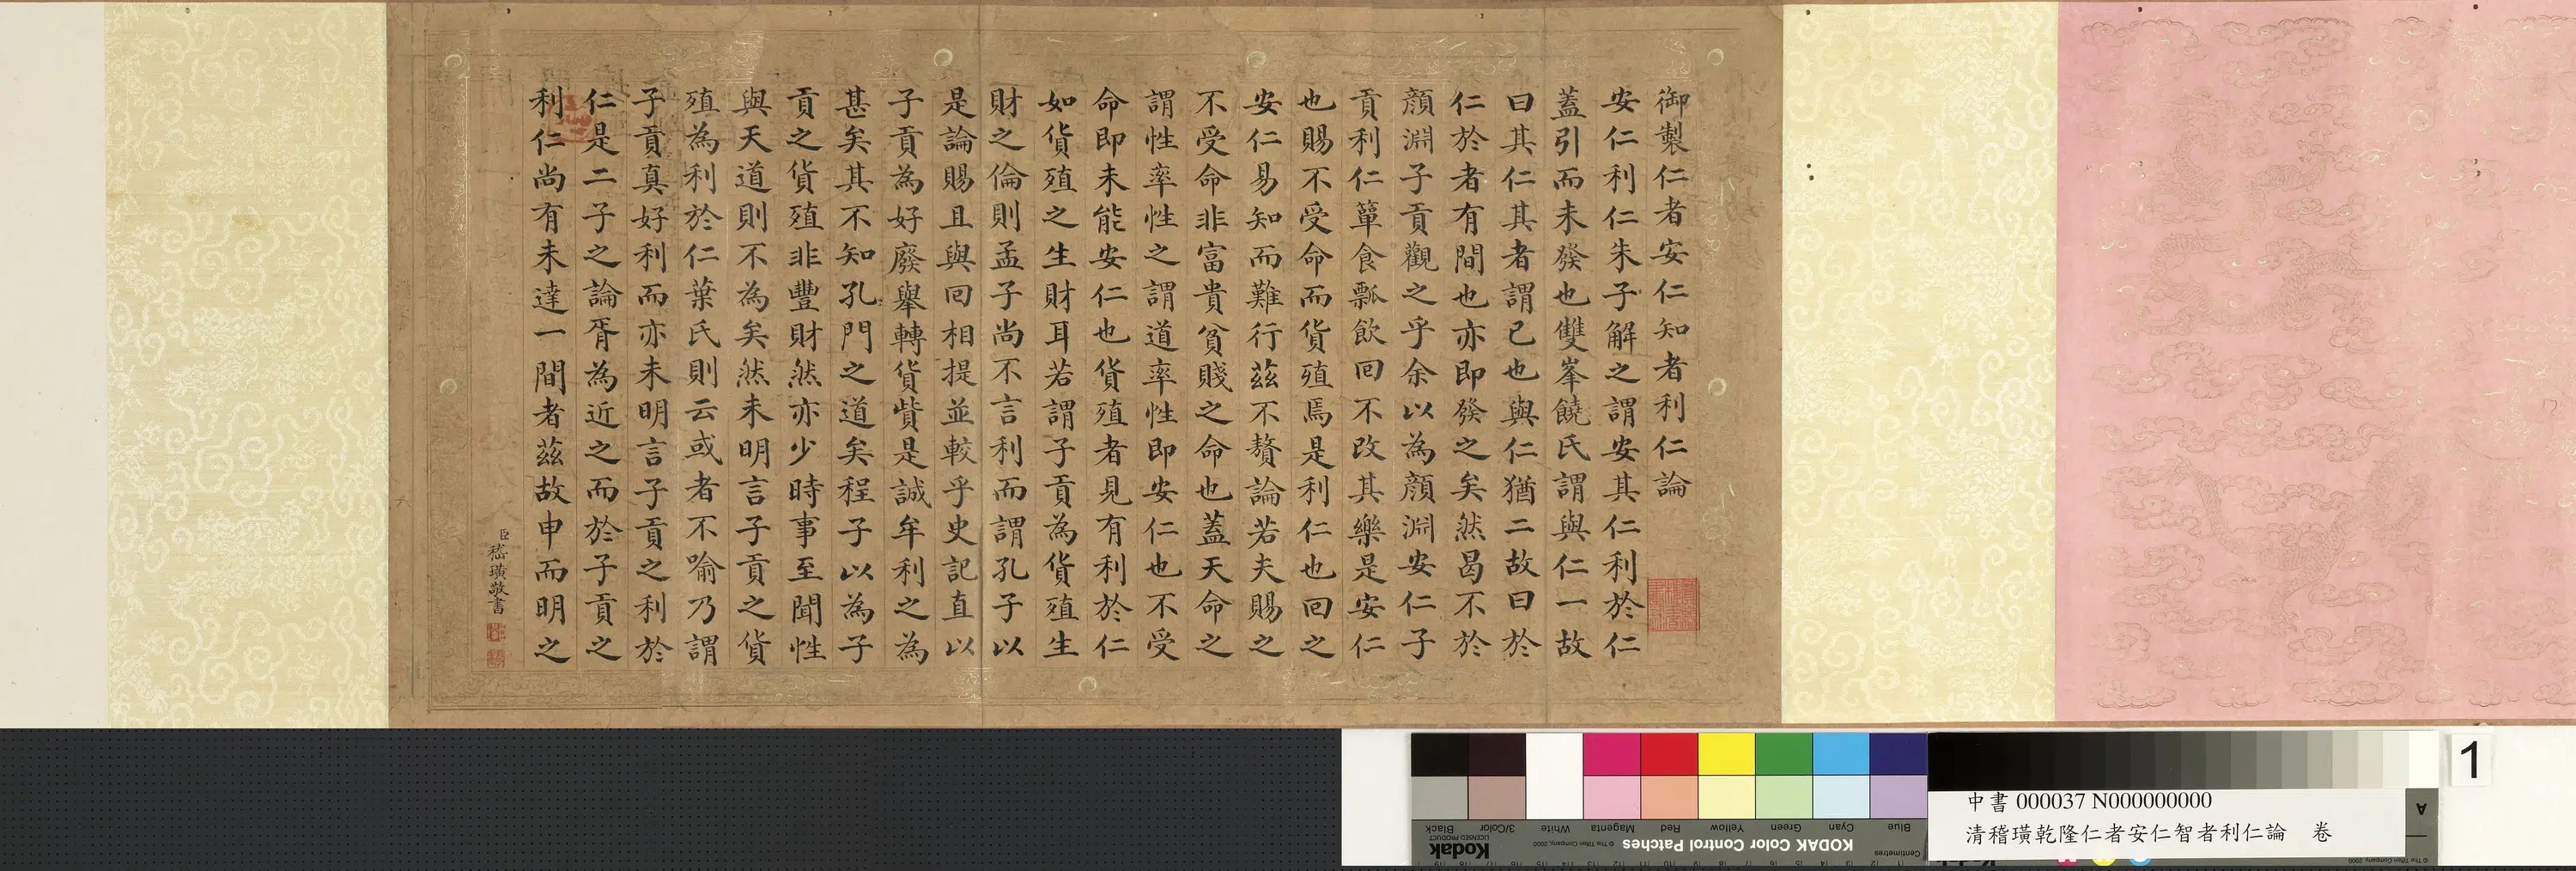 御製仁者安仁知者利仁論
安仁利仁朱子解之謂安其仁利於仁
蓋引而未發也雙峯饒氏謂與仁一故
曰其仁其者謂已也與仁猶二故曰於
仁於者有間也亦即發之矣然曷不於
顏淵子貢觀之乎余以為顏淵安仁子
貢利仁簞食瓢飲回不改其樂是安仁
也賜不受命而貨殖焉是利仁也回之
安仁易知而難行茲不贅論若夫賜之
不受命非富貴貧賤之命也蓋天命之
謂性率性之謂道率性即安仁也不受
命即未能安仁也貨殖者見有利於仁
如貨殖之生財耳若謂子貢為貨殖生
財之倫則孟子尚不言利而謂孔子以
是論賜且與回相提並較乎史記直以
子貢為好廢舉轉貨貲是誠牟利之為
甚矣其不知孔門之道矣程子以為子
貢之貨殖非豐財然亦少時事至聞性
與天道則不為矣然未明言子貢之貨
殖為利於仁葉氏則云或者不喻乃謂
子貢真好利而亦未明言子貢之利於
仁是二子之論胥為近之而於子貢之
利仁尚有未達一間者茲故申而明之
臣嵇璜敬書
1
中書 000037 N000000000
清稽璜乾隆仁者安仁智者利仁論 卷
Blue Cyan Green Yellow Red Magenta White 3/Color Black
KODAK Color Control Patches
© The Tiffen Company, 2000
LICENSED PRODUCT
Kodak
Centimetres
A